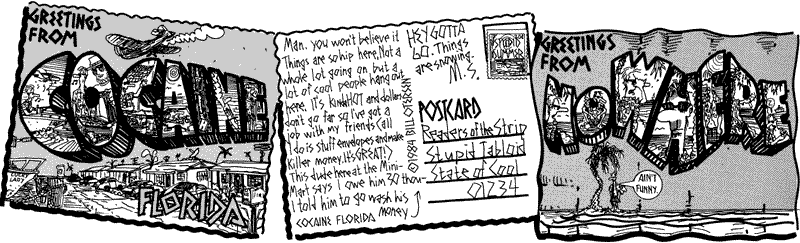 GREETINGS
FROM
COCAINE
FLORIDA
Man, you won't believe it
Things are so hip here. Not a
whole lot going on, but a
lot of cool people hang out
here. IT'S kinda HOT and dollars
don't go far so I've got a
job with my friends. All
I do is stuff envelopes and make
killer money. It's GREAT!
This dude here at the Mini-
Mart says I owe him 30 thou-
I told him to go wash his
COCAINE FLORIDA money
HEY GOTTA
GO. Things
are snowing.
M.S.
STUPID
©1989 BILL
POSTCARD
Readers of the Strip
Stupid Tabloid
State of Cool
01234
GREETINGS
FROM
NOWHERE
AIN'T
FUNNY.